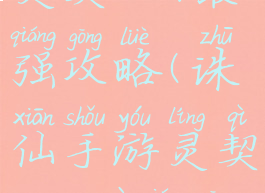 qiáng gōng lüè zhū
强攻略(诛
xiān shǒu yóu líng qì
仙手游灵契